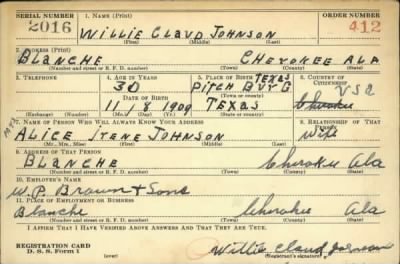 SERIAL NUMBER 1. NAME (Print) ORDER NUMBER
2016 WILLIE CLAUD JOHNSON 412
(First) (Middle) (Last)
2. ADDRESS (Print)
BLANCHE CHEROKEE ALA
(Number and street or R. F. D. number) (Town) (County) (State)
3. TELEPHONE 4. AGE IN YEARS 5. PLACE OF BIRTH 6. COUNTRY OF CITIZENSHIP
30 TEXAS USA
PITCH BURG Cherokee
DATE OF BIRTH (Town or county)
11 8 1909 TEXAS
(Exchange) (Number) (Mo.) (Day) (Yr.) (State or country)
7. NAME OF PERSON WHO WILL ALWAYS KNOW YOUR ADDRESS 8. RELATIONSHIP OF THAT PERSON
MRS ALICE IRENE JOHNSON Wife
(Mr., Mrs., Miss) (First) (Middle) (Last)
9. ADDRESS OF THAT PERSON
BLANCHE Cherokee Ala
(Number and street or R. F. D. number) (Town) (County) (State)
10. EMPLOYER'S NAME
W. P. Brown & Sons
11. PLACE OF EMPLOYMENT OR BUSINESS
Blanche Cherokee Ala
(Number and street or R. F. D. number) (Town) (County) (State)
I AFFIRM THAT I HAVE VERIFIED ABOVE ANSWERS AND THAT THEY ARE TRUE.
REGISTRATION CARD
D. S. S. Form 1 (over) Willie Claud Johnson
(Registrant's signature)